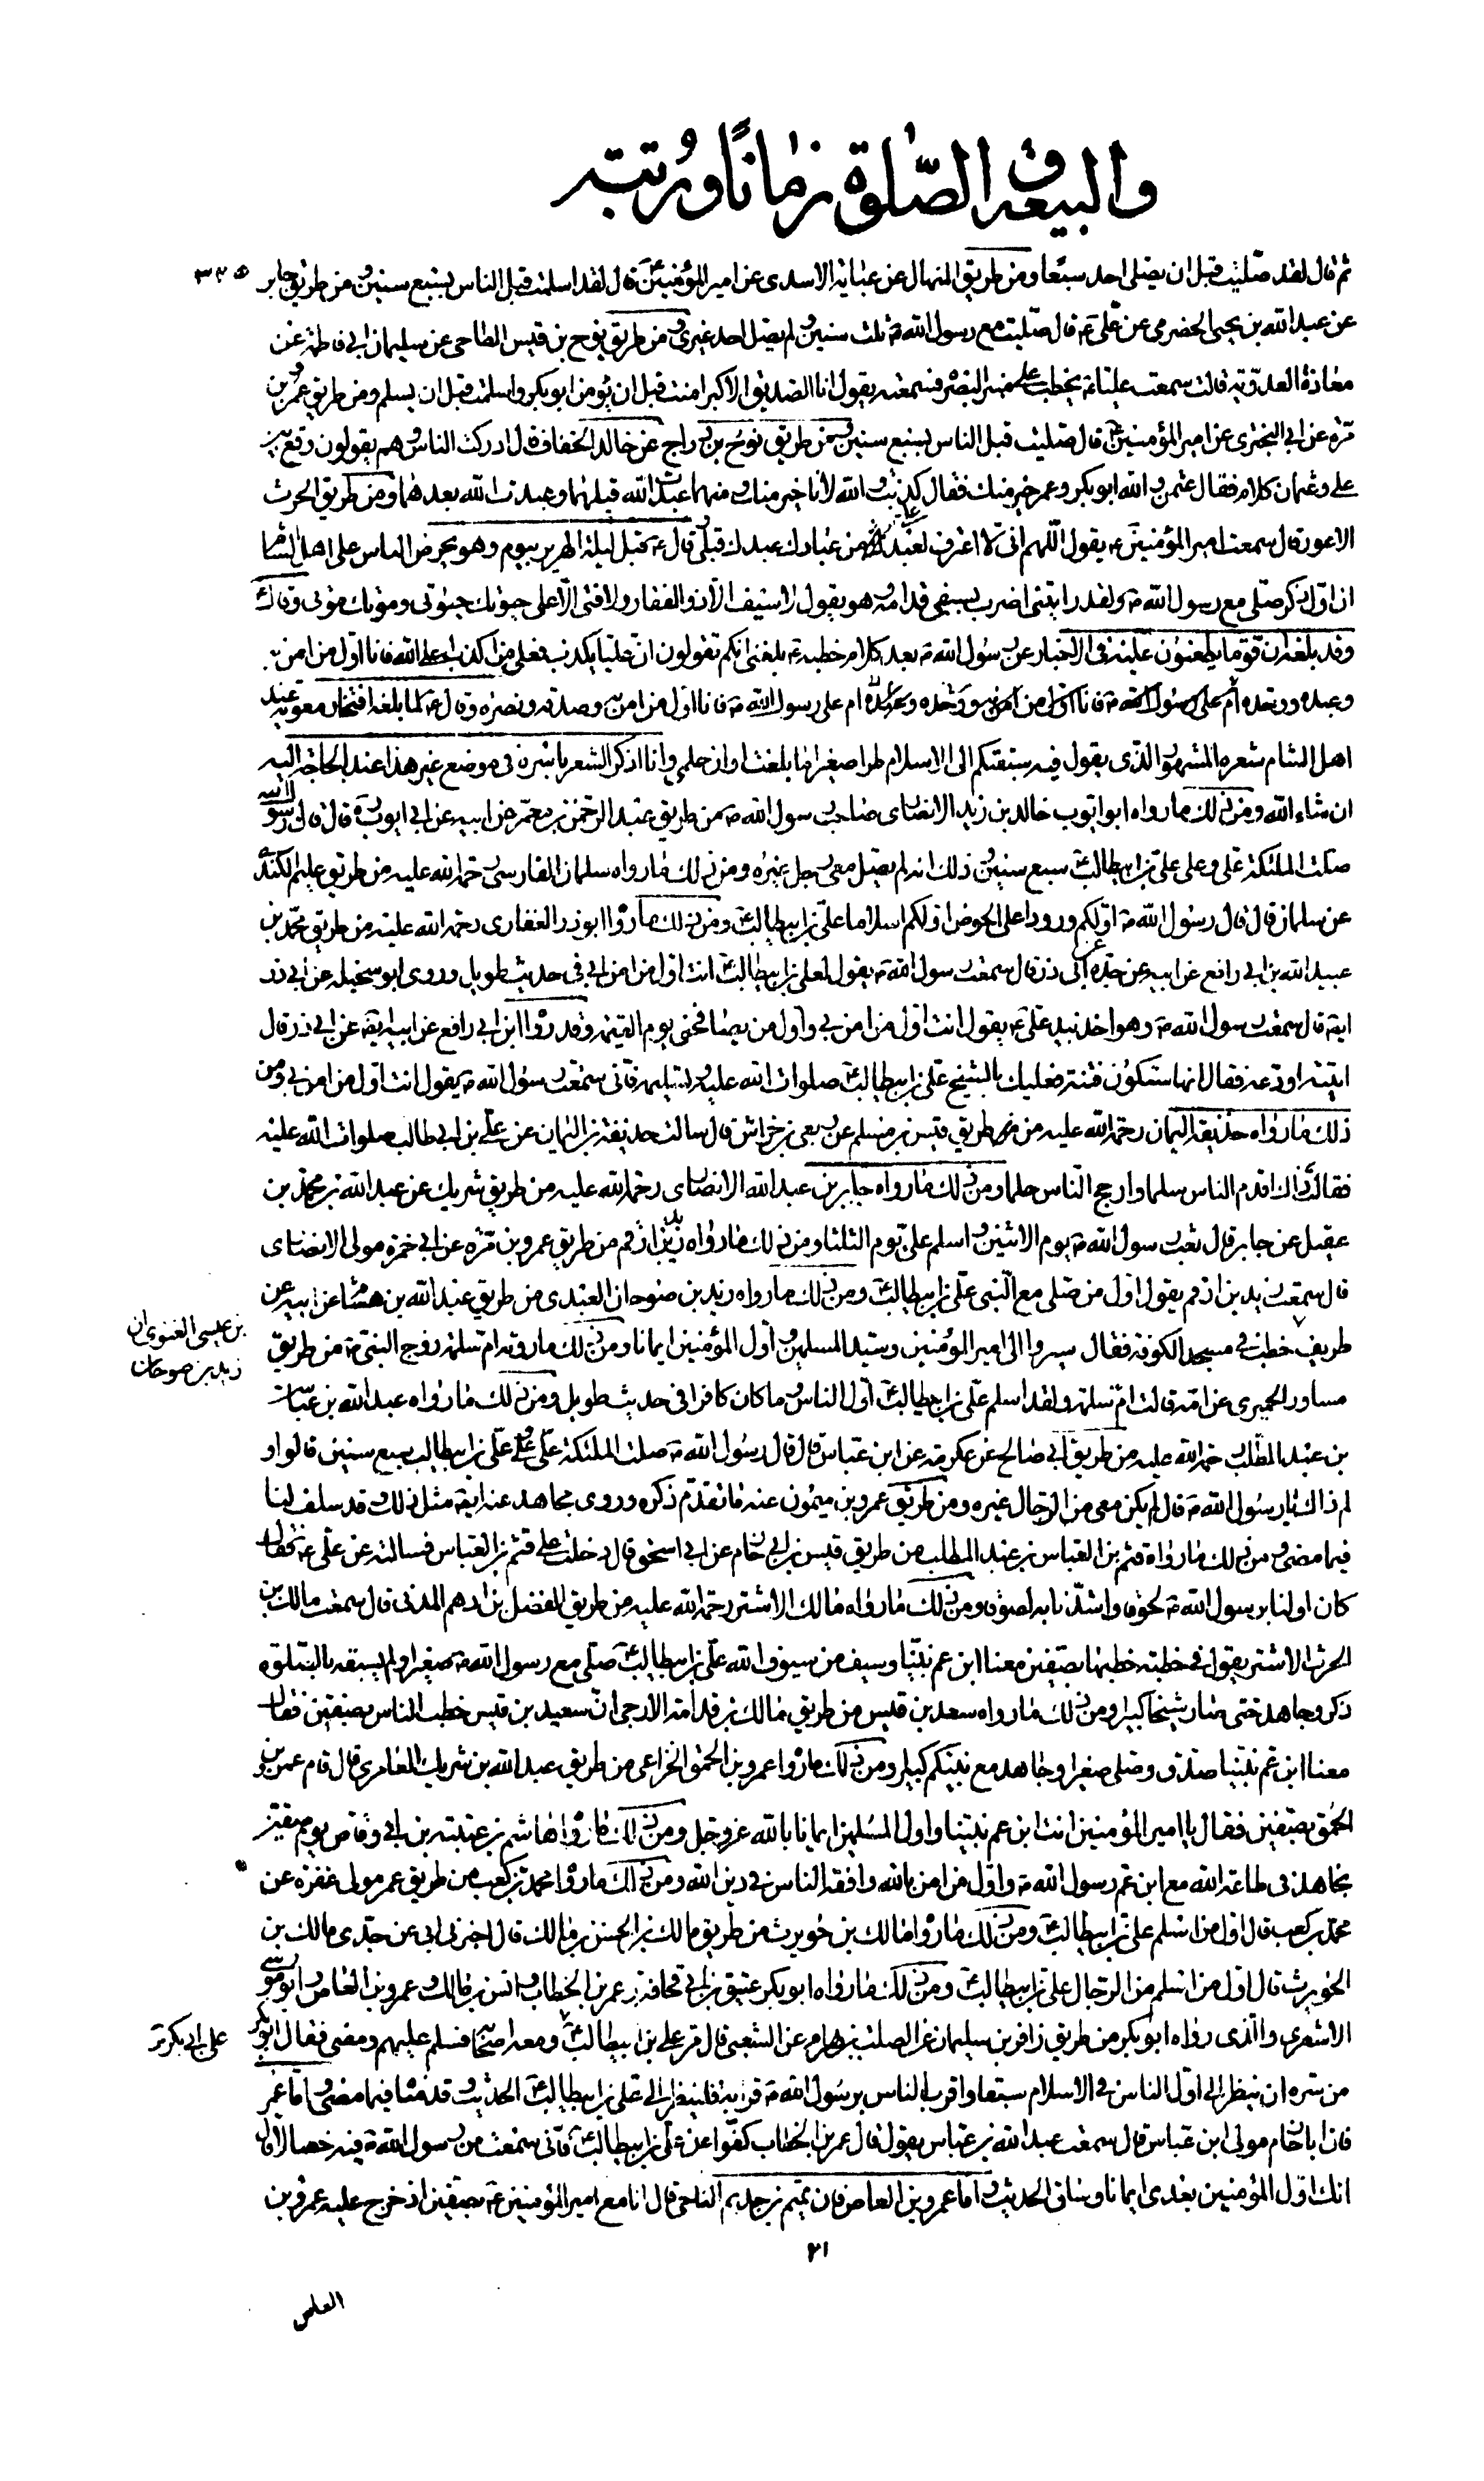 والبيعة والصلوة زمانا ورتبة
ثم قال لقد صليت قبل ان يصلى احد سبعا ومن طريق المنهال عن عباية الاسدى عن امير المؤمنين ع قال لقد اسلمت قبل الناس بسبع سنين ومن طريق جابر
٣٣٥
عن عبد الله بن يحيى الحضرمى عن على ع قال صليت مع رسول الله ص ثلث سنين ولم يصل احد غيرى ومن طريق نوح بن قيس الطاحى عن سليمان ابى فاطمة عن
معاذة العدوية قالت سمعت عليا ع يخطب على منبر البصرة فسمعته يقول انا الصديق الاكبر امنت قبل ان يؤمن ابو بكر واسلمت قبل ان يسلم ومن طريق عمرو بن
مرة عن ابى البخترى عن امير المؤمنين ع قال صليت قبل الناس بسبع سنين ومن طريق نوح بن دراج عن خالد الخفاف قال ادركت الناس وهم يقولون وقع بين
على وعثمان كلام فقال عثمن والله ابو بكر وعمر خير منك فقال كذبت والله لانا خير منك ومنهما عبدت الله قبلهما وعبدت الله بعدهما ومن طريق الحرث
الاعور قال سمعت امير المؤمنين ع يقول اللهم انى لا اعرف لعبد من عبادك عبدك قبلى وقال ع قبل ليلة الهرير بيوم وهو يحرض الناس على اهل الشام
انا اول ذكر صلى مع رسول الله ص ولقد رايتنى اضرب بسيفى قدامه وهو يقول لا سيف الا ذو الفقار ولا فتى الا على حيوتك حيوتى وموتك موتى وقال ع
وقد بلغه ان قوما يطعنون عليه فى الاخبار عن رسول الله ص بعد كلام خطبه ع بلغنى انكم تقولون ان عليا يكذب فعلى من اكذب اعلى الله فانا اول من امن به
وعبده ووحده ام على رسول الله ص فانا اول من امن به وصدقه ونصره وقال ع لما بلغه افتخار معوية عند
اهل الشام شعره المشهور الذى يقول فيه سبقتكم الى الاسلام طرا صغيرا ما بلغت اوان حلمى وانا اذكر الشعر باسره فى موضع غير هذا عند الحاجة اليه
ان شاء الله ومن ذلك ما رواه ابو ايوب خالد بن زيد الانصارى صاحب رسول الله ص من طريق عبد الرحمن بن معمر عن ابيه عن ابى ايوب ره قال قال رسول الله
صلت الملئكة على وعلى على بن ابيطالب ع سبع سنين وذلك انه لم يصل معى رجل غيره ومن ذلك ما رواه سلمان الفارسى رحمة الله عليه من طريق عليم الكندى
عن سلمان قال قال رسول الله ص اولكم ورودا على الحوض اولكم اسلاما على بن ابيطالب ع ومن ذلك ما رواه ابو ذر الغفارى رحمة الله عليه من طريق محمد بن
عبيد الله بن ابى رافع عن ابيه عن جده عن ابى ذر قال سمعت رسول الله ص يقول لعلى بن ابيطالب ع انت اول من امن بى فى حديث طويل وروى ابو سخيلة عن ابى ذر
ايضا قال سمعت رسول الله ص وهو اخذ بيد على ع يقول انت اول من امن بى واول من يصافحنى يوم القيمة وقد رواه ابن ابى رافع عن ابيه ايضا عن ابى ذر قال
اتيته اودعه فقال انها ستكون فتنة فعليك بالشيخ على بن ابيطالب ع صلوات الله عليه وتسليمه فانى سمعت رسول الله ص يقول انت اول من امن بى ومن
ذلك ما رواه حذيفة اليمان رحمة الله عليه من طريق قيس بن مسلم عن ربعى بن خراش قال سالت حذيفة بن اليمان عن على بن ابى طالب صلوات الله عليه
فقال ذاك اقدم الناس سلما وارجح الناس حلما ومن ذلك ما رواه جابر بن عبد الله الانصارى رحمة الله عليه من طريق شريك عن عبد الله بن محمد بن
عقيل عن جابر قال بعث رسول الله ص يوم الاثنين واسلم على يوم الثلثا ومن ذلك ما رواه زيد بن ارقم من طريق عمرو بن مرة عن ابى حمزة مولى الانصارى
قال سمعت زيد بن ارقم يقول اول من صلى مع النبى على بن ابيطالب ع ومن ذلك ما رواه زيد بن صوحان العبدى من طريق عبد الله بن هشام عن ابيه عن
طريف خطب فى مسجد الكوفة فقال سيروا الى امير المؤمنين وسيد المسلمين واول المؤمنين ايمانا ومن ذلك ما روته ام سلمة زوج النبى ص من طريق
بن عيسى الغنوى ان
زيد بن صوحان
مساور الحميرى عن امه قالت ام سلمة ولقد اسلم على بن ابيطالب ع اول الناس وما كان كافرا فى حديث طويل ومن ذلك ما رواه عبد الله بن عباس
بن عبد المطلب رحمة الله عليه من طريق ابى صالح عن عكرمة عن ابن عباس قال قال رسول الله ص صلت الملئكة على وعلى على بن ابيطالب سبع سنين قالوا و
لم ذاك يا رسول الله ص قال لم يكن معى من الرجال غيره ومن طريق عمرو بن ميمون عنه ما تقدم ذكره وروى مجاهد عنه ايضا مثل ذلك وقد سلف لنا
فيما مضى ومن ذلك ما رواه قثم بن العباس بن عبد المطلب من طريق قيس بن ابى حازم عن ابى اسحق قال دخلت على قثم بن العباس فسالته عن على ع فقال
كان اولنا برسول الله ص لحوقا واشدنا به لصوقا ومن ذلك ما رواه مالك الاشتر رحمة الله عليه من طريق الفضل بن ادهم المدنى قال سمعت مالك بن
الحرث الاشتر يقول فى خطبة خطبها بصفين معنا ابن عم نبينا وسيف من سيوف الله على بن ابيطالب ع صلى مع رسول الله ص صغيرا ولم يسبقه بالصلوة
ذكر وجاهد حتى صار شيخا كبيرا ومن ذلك ما رواه سعد بن قيس من طريق مالك بن قدامة الارحبى ان سعيد بن قيس خطب الناس بصفين فقال
معنا ابن عم نبينا صدق وصلى صغيرا وجاهد مع نبيكم كبيرا ومن ذلك ما رواه عمرو بن الحمق الخزاعى من طريق عبد الله بن شريك العامرى قال قام عمرو بن
الحمق بصفين فقال يا امير المؤمنين انت ابن عم نبينا واول المسلمين ايمانا بالله عز وجل ومن ذلك ما رواه هاشم بن عتبة بن ابى وقاص يوم صفين
نجاهد فى طاعة الله مع ابن عم رسول الله ص واول من امن بالله وافقه الناس فى دين الله ومن ذلك ما رواه محمد بن كعب من طريق عمر مولى غفرة عن
محمد بن كعب قال اول من اسلم على بن ابيطالب ع ومن ذلك ما رواه مالك بن حويرث من طريق مالك بن الحسن بن مالك قال اخبرنى ابى عن جدى مالك بن
الحويرث قال اول من اسلم من الرجال على بن ابيطالب ع ومن ذلك ما رواه ابو بكر عتيق بن ابى قحافة وعمر بن الخطاب وانس بن مالك وعمرو بن العاص وابو موسى
الاشعرى والذى رواه ابو بكر من طريق زافر بن سليمان عن الصلت بن بهرام عن الشعبى قال مر على بن ابيطالب ع ومعه اصحابه فسلم عليهم ومضى فقال ابو بكر
على ابى بكر
من سره ان ينظر الى اول الناس فى الاسلام سبقا واقرب الناس برسول الله ص قرابة فلينظر الى على بن ابيطالب ع الحديث وقد مضى فيما مضى واما عمر
فان ابا حازم مولى ابن عباس قال سمعت عبد الله بن عباس يقول قال عمر بن الخطاب كفوا عن على بن ابيطالب ع فانى سمعت من رسول الله ص فيه خصالا قال
انك اول المؤمنين بعدى ايمانا وساق الحديث واما عمرو بن العاص فان تميم بن جذيم الناجى قال انا مع امير المؤمنين ع بصفين اذ خرج عليه عمرو بن
٢١
العاص